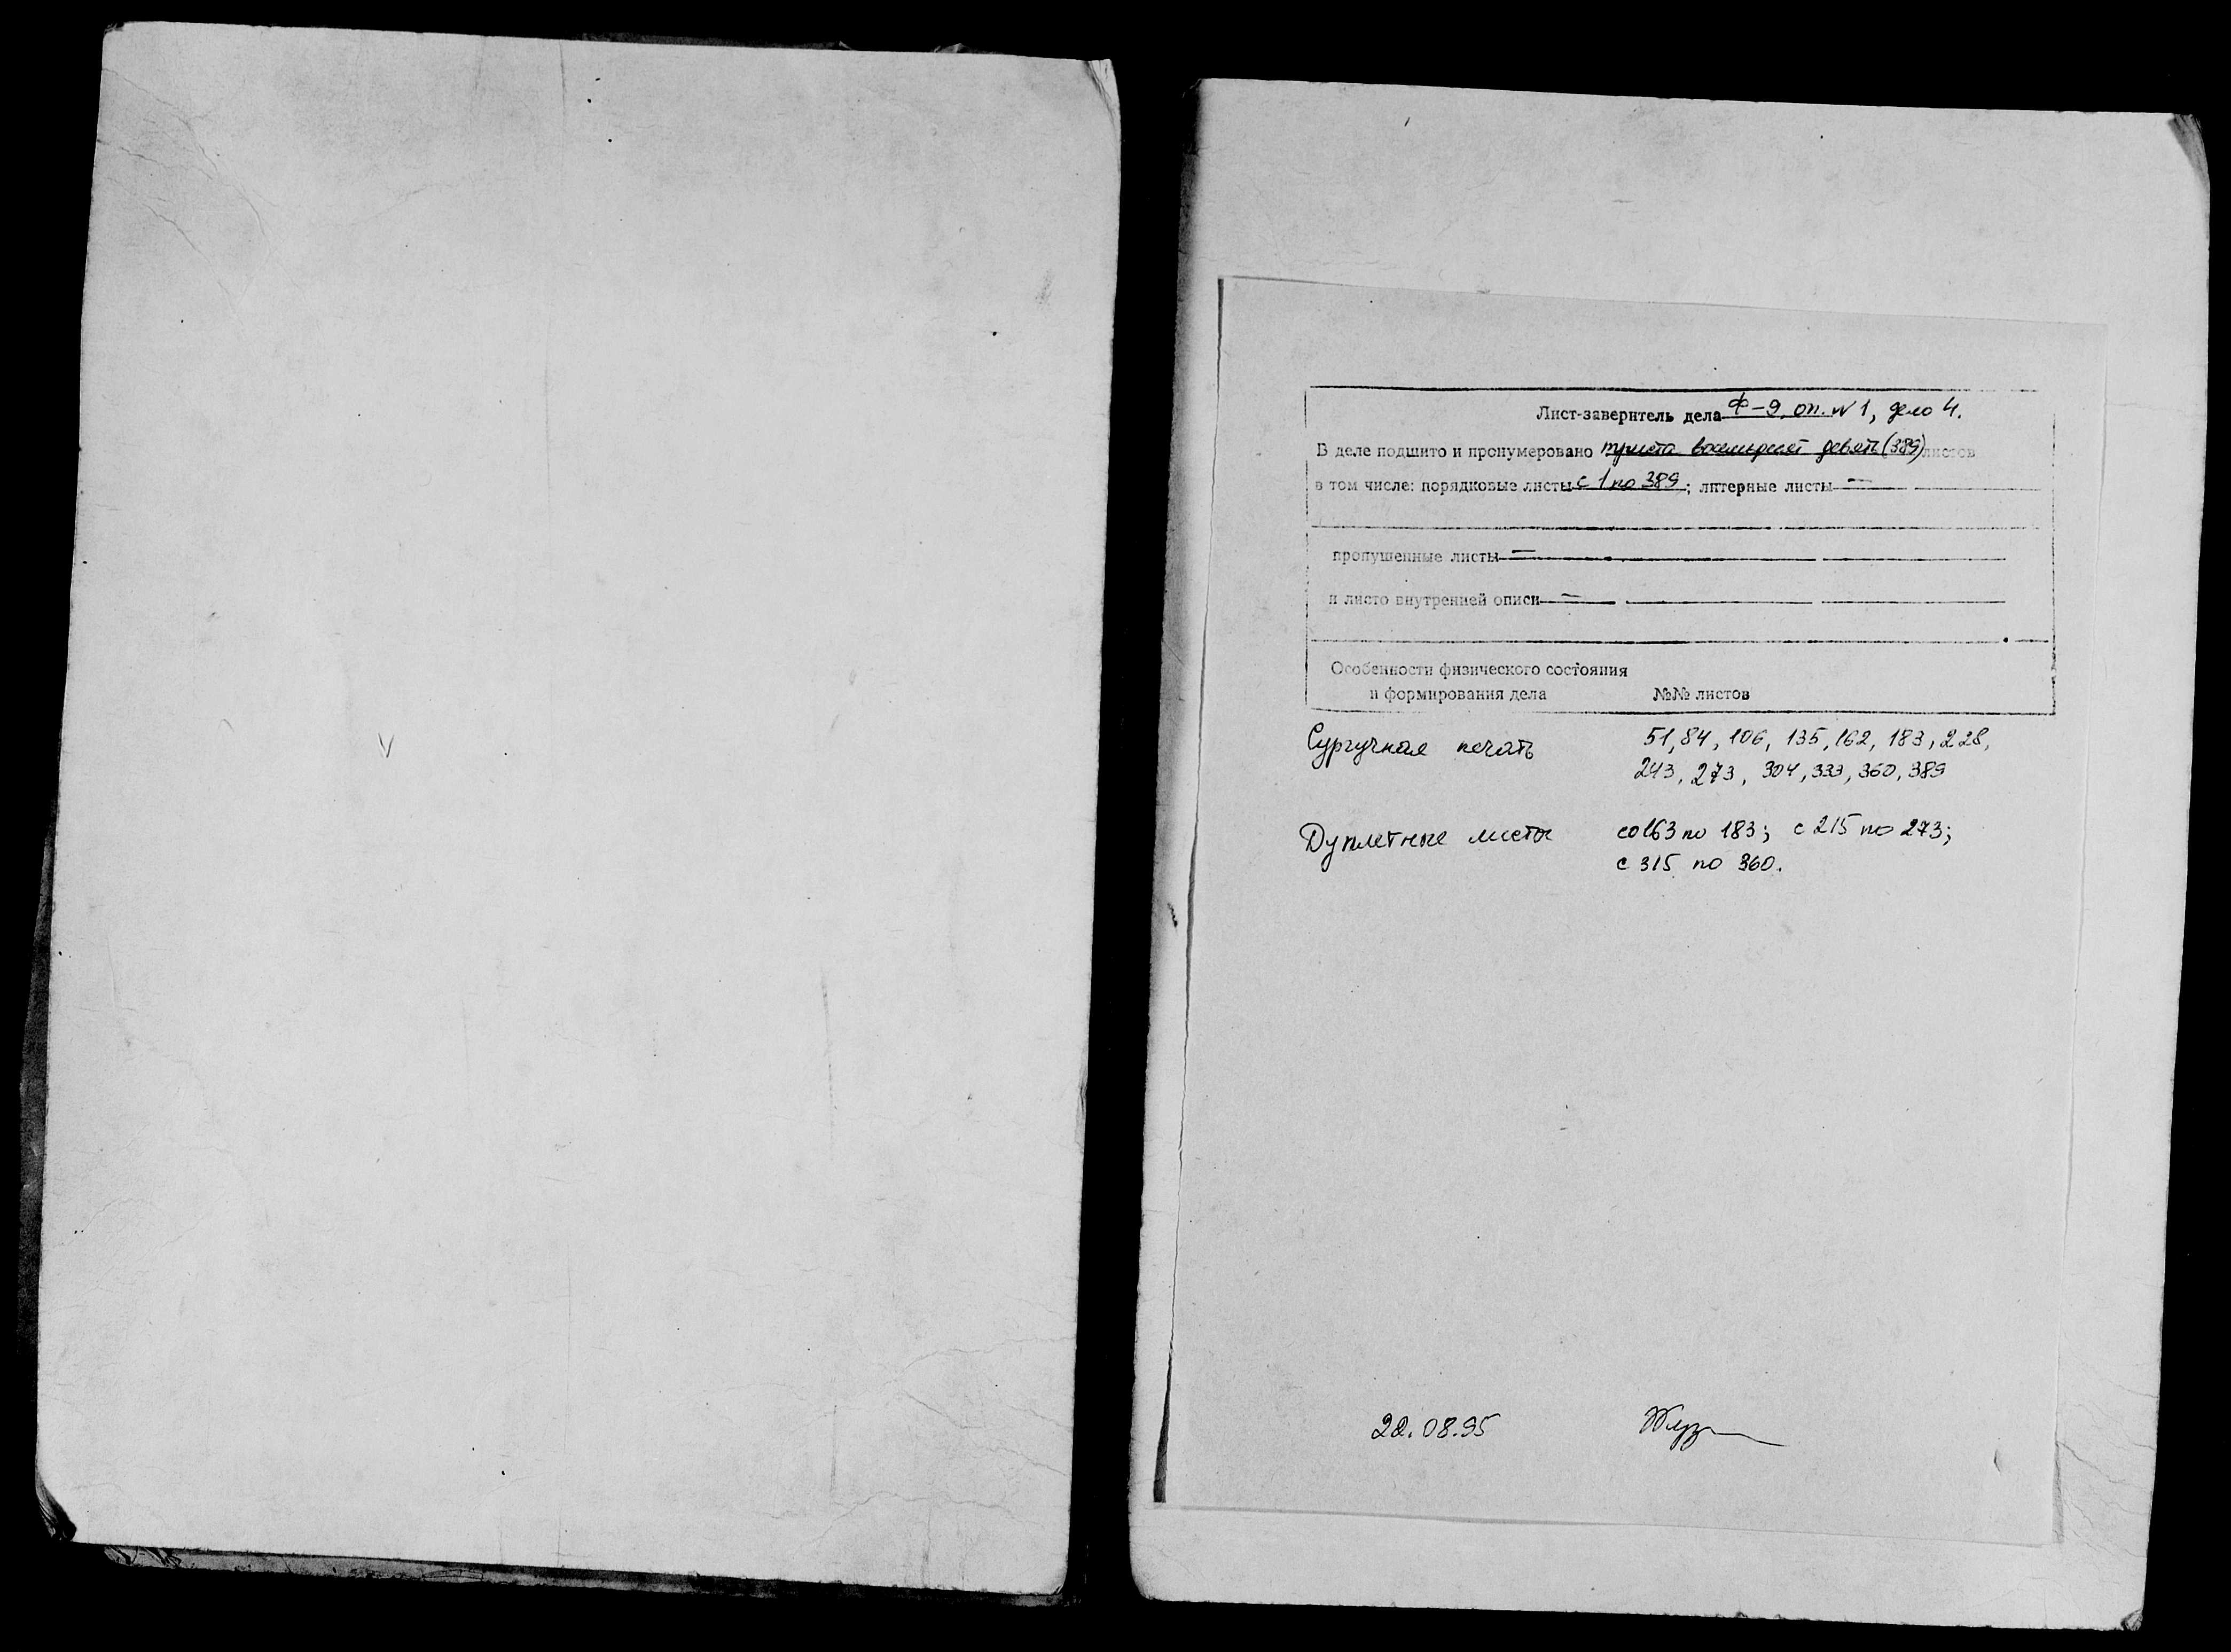 Лист-заверитель дела Ф-9, оп. N 1, дело 4.
В деле подшито и пронумеровано триста восемьдесят девять (389) листов
в том числе: порядковые листы с 1 по 389; литерные листы —
пропушенные листы —
и листо внутренней описи —
Особенности физического состояния
и формирования дела №№ листов
Сургучная печать 51, 84, 106, 135, 162, 183, 228,
243, 273, 304, 333, 360, 389
Дуплетные листы со 163 по 183; с 215 по 273;
с 315 по 360.
22.08.95